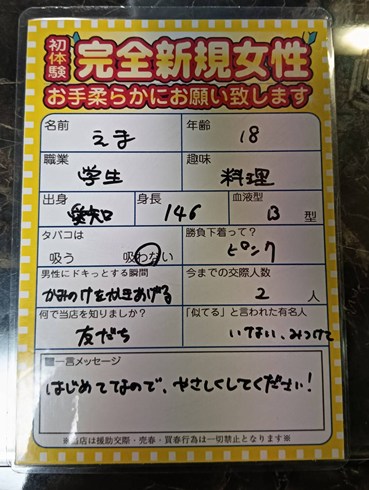 初体験 完全新規女性
お手柔らかにお願い致します
名前 えま 年齢 18
職業 学生 趣味 料理
出身 愛知 身長 146 血液型 B 型
タバコは 吸う 吸わない 勝負下着って? ピンク
男性にドキっとする瞬間 かみのけをかきあげる 今までの交際人数 2 人
何で当店を知りましたか? 友だち 「似てる」と言われた有名人 いない、みつけて
一言メッセージ
はじめててなので、やさしくしてください!
※当店は援助交際・売春・買春行為は一切禁止となります※